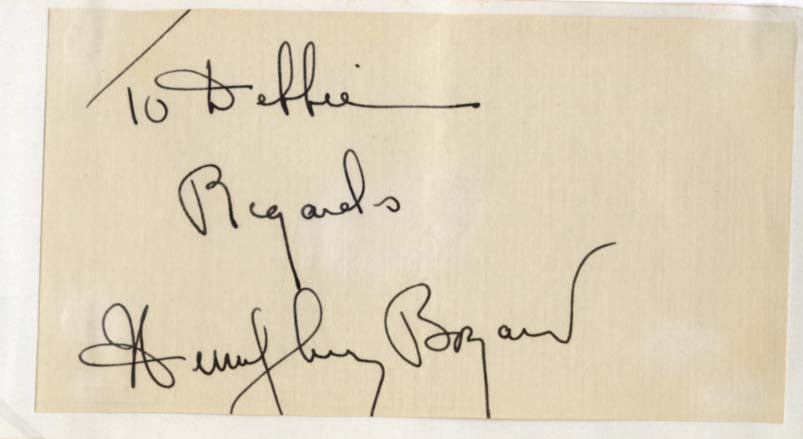 To Debbie
Regards
Humphrey Bogart